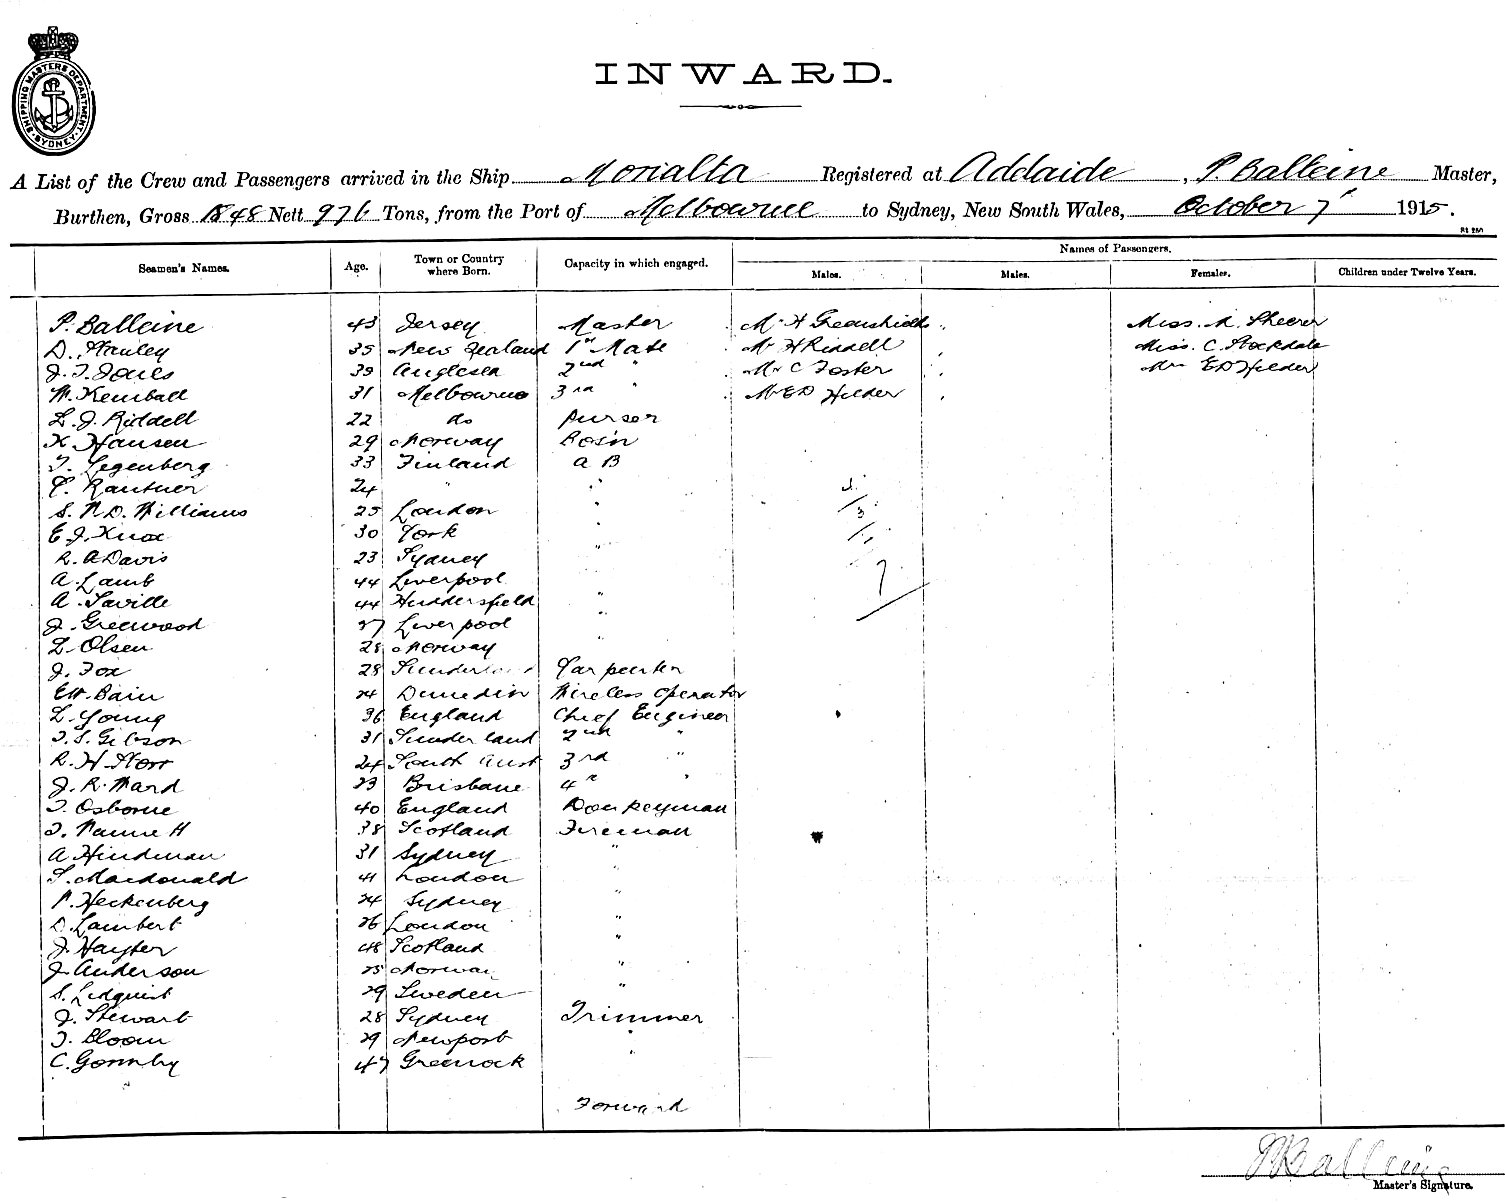 SHIPPING MASTERS DEPARTMENT SYDNEY
INWARD.
A List of the Crew and Passengers arrived in the Ship Morialta Registered at Adelaide, P Balleine Master,
Burthen, Gross 1848 Nett 976 Tons, from the Port of Melbourne to Sydney, New South Wales, October 7 1915.
Names of Passengers.
Seamen's Names. Age. Town or Country where Born. Capacity in which engaged. Males. Males. Females. Children under Twelve Years.
P. Balleine 43 Jersey Master Mr H Greenshields Miss. M. Sheerer
D. Stanley 35 New Zealand 1st Mate Mr H Riddell Miss. C. Stockdale
J. T. Jones 39 Anglesea 2nd " Mr C Foster Mrs E D Helder
W. Kemball 31 Melbourne 3rd " Mr E D Helder
L. J. Riddell 22 do Purser
K Hansen 29 Norway Bos'n
T. Segenberg 33 Finland A B
Rautner 24 " "
S. N. D. Williams 25 London "
E J. Knox 30 York
R. A Davis 23 Sydney "
A. Lamb 44 Liverpool
A. Saville 44 Huddersfield "
J. Greewood 37 Liverpool "
L. Olsen 28 Norway "
J. Fox 28 Sunderland Carpenter
EW. Bain 24 Dunedin Wireless Operator
L. Young 36 England Chief Engineer
T. S. Gibson 31 Sunderland 2nd "
R. H. Storr 24 South Aust 3rd "
J. R. Ward 23 Brisbane 4th "
T. Osborne 40 England Donkeyman
T. H 38 Scotland Fireman
A Hindman 31 Sydney "
S. Macdonald 41 London "
P. Heckenberg 24 Sydney "
D. Lambert 26 London "
J. Hayter 48 Scotland
J. Anderson 25 Norway "
S. Lidquist 29 Sweden "
J. Stewart 28 Sydney Trimmer
T. Bloom 29 Newport "
C. Gormby 47 Greenock "
Forward
P Balleine
Master's Signature.